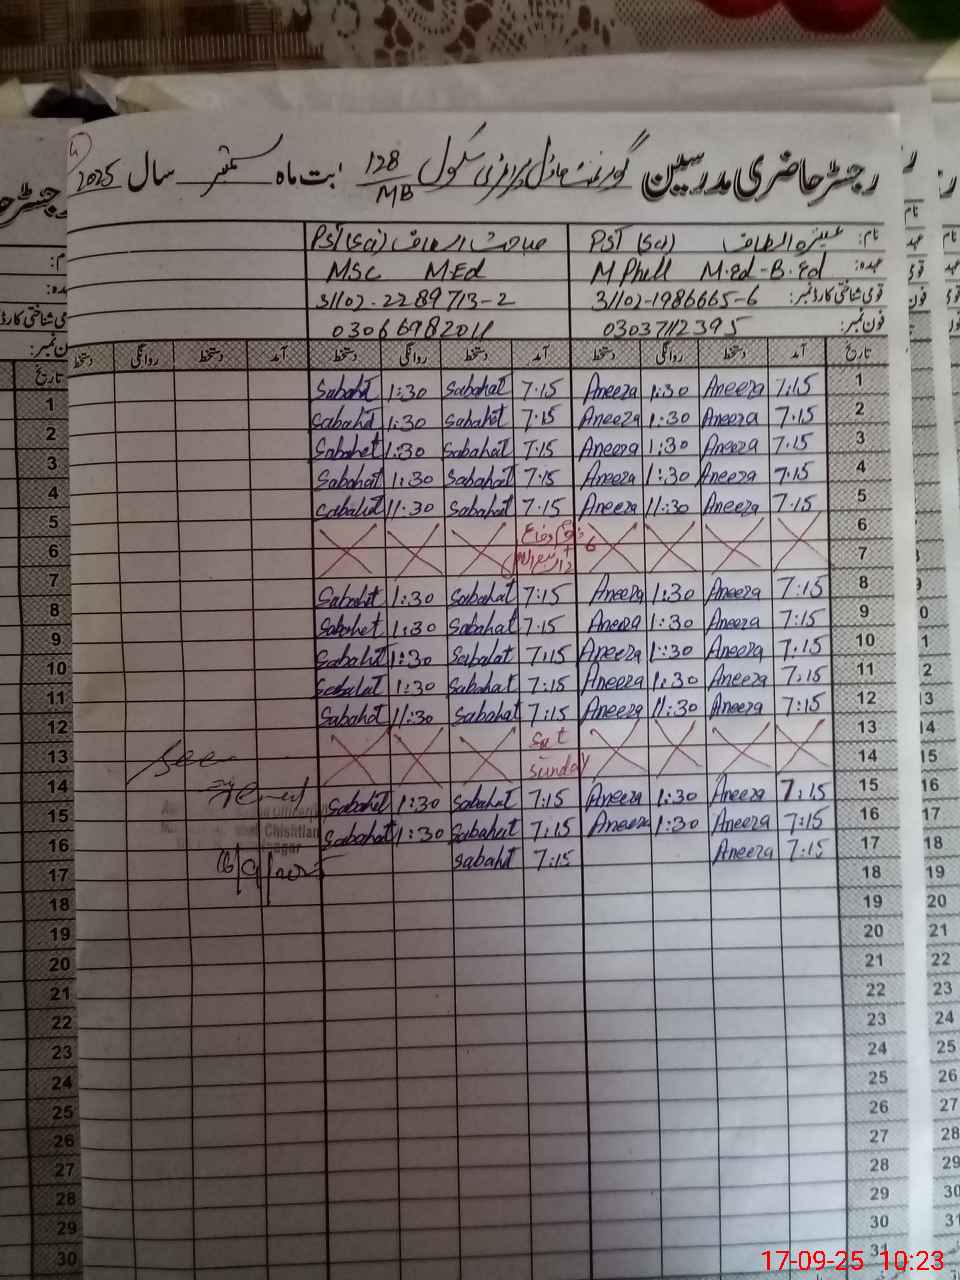 رجسٹر حاضری مدرسین گورنمنٹ ماڈل پرائمری سکول 128/MB بت ماہ ستمبر سال 2025
نام: عنیزہ الطاف PST (Sci) صباحت الطاف PST (Sci)
عہدہ: M Phill M.Ed-B.Ed MSc M.Ed
قومی شناختی کارڈ نمبر: 31102-1986665-6 31102-2289713-2
فون نمبر: 03037112395 03066982011
تاریخ آمد دستخط روانگی دستخط آمد دستخط روانگی دستخط آمد دستخط روانگی دستخط
1 7:15 Aneeza 1:30 Aneeza 7:15 Sabahat 1:30 Sabahat
2 7:15 Aneeza 1:30 Aneeza 7:15 Sabahat 1:30 Sabahat
3 7:15 Aneeza 1:30 Aneeza 7:15 Sabahat 1:30 Sabahat
4 7:15 Aneeza 1:30 Aneeza 7:15 Sabahat 1:30 Sabahat
5 7:15 Aneeza 11:30 Aneeza 7:15 Sabahat 11:30 Sabahat
6
7
8 7:15 Aneeza 1:30 Aneeza 7:15 Sabahat 1:30 Sabahat
9 7:15 Aneeza 1:30 Aneeza 7:15 Sabahat 1:30 Sabahat
10 7:15 Aneeza 1:30 Aneeza 7:15 Sabahat 1:30 Sabahat
11 7:15 Aneeza 1:30 Aneeza 7:15 Sabahat 1:30 Sabahat
12 7:15 Aneeza 11:30 Aneeza 7:15 Sabahat 11:30 Sabahat
13 Sat
14 Sunday
15 7:15 Aneeza 1:30 Aneeza 7:15 Sabahat 1:30 Sabahat
16 7:15 Aneeza 1:30 Aneeza 7:15 Sabahat 1:30 Sabahat
17 7:15 Aneeza 7:15 Sabahat
See
Chishtian
16/9/2025
18
19
20
21
22
23
24
25
26
27
28
29
30
31
17-09-25 10:23